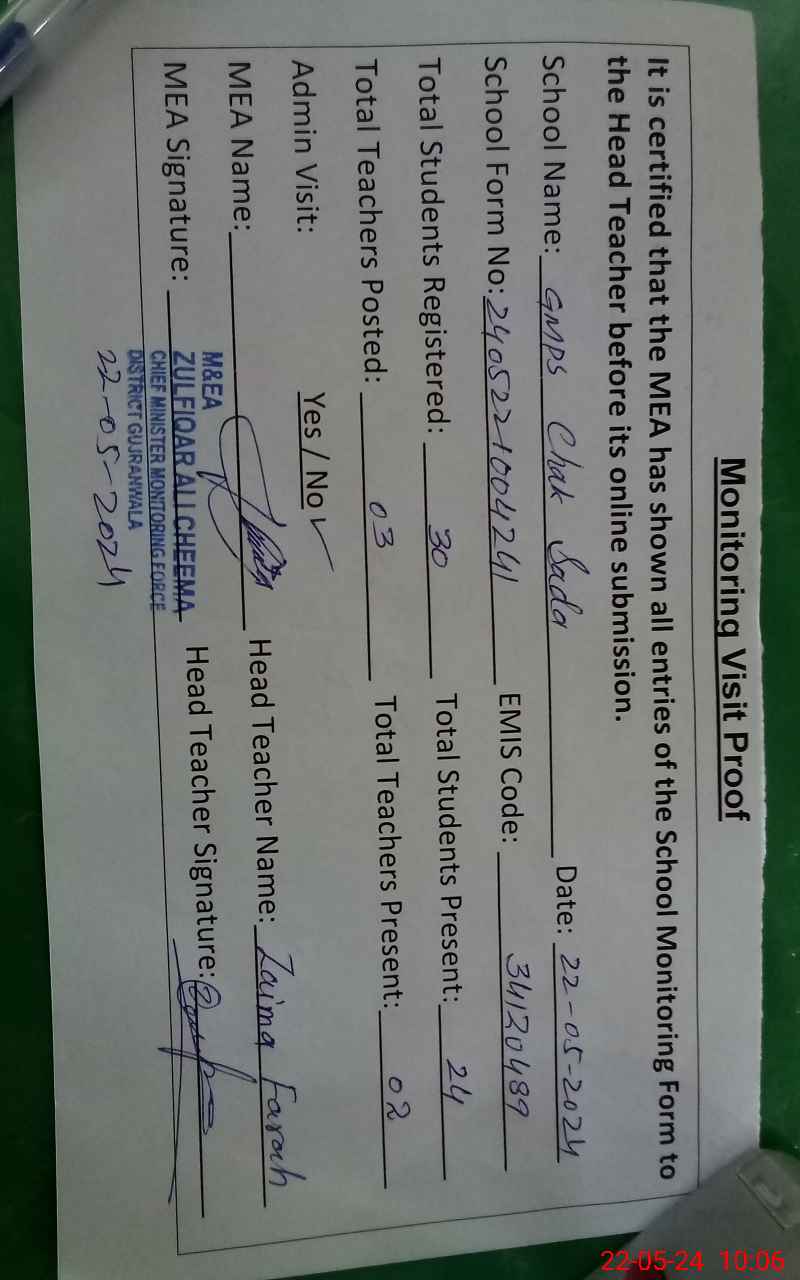 Monitoring Visit Proof
It is certified that the MEA has shown all entries of the School Monitoring Form to
the Head Teacher before its online submission.
School Name: GMPS Chak Sada Date: 22-05-2024
School Form No: 2405221004241 EMIS Code: 34120489
Total Students Registered: 30 Total Students Present: 24
Total Teachers Posted: 03 Total Teachers Present: 02
Admin Visit: Yes / No ✓
MEA Name: Head Teacher Name: Zaima Farah
MEA Signature: Head Teacher Signature:
M&EA
ZULFIQAR ALI CHEEMA
CHIEF MINISTER MONITORING FORCE
DISTRICT GUJRANWALA
22-05-2024
22-05-24 10:06